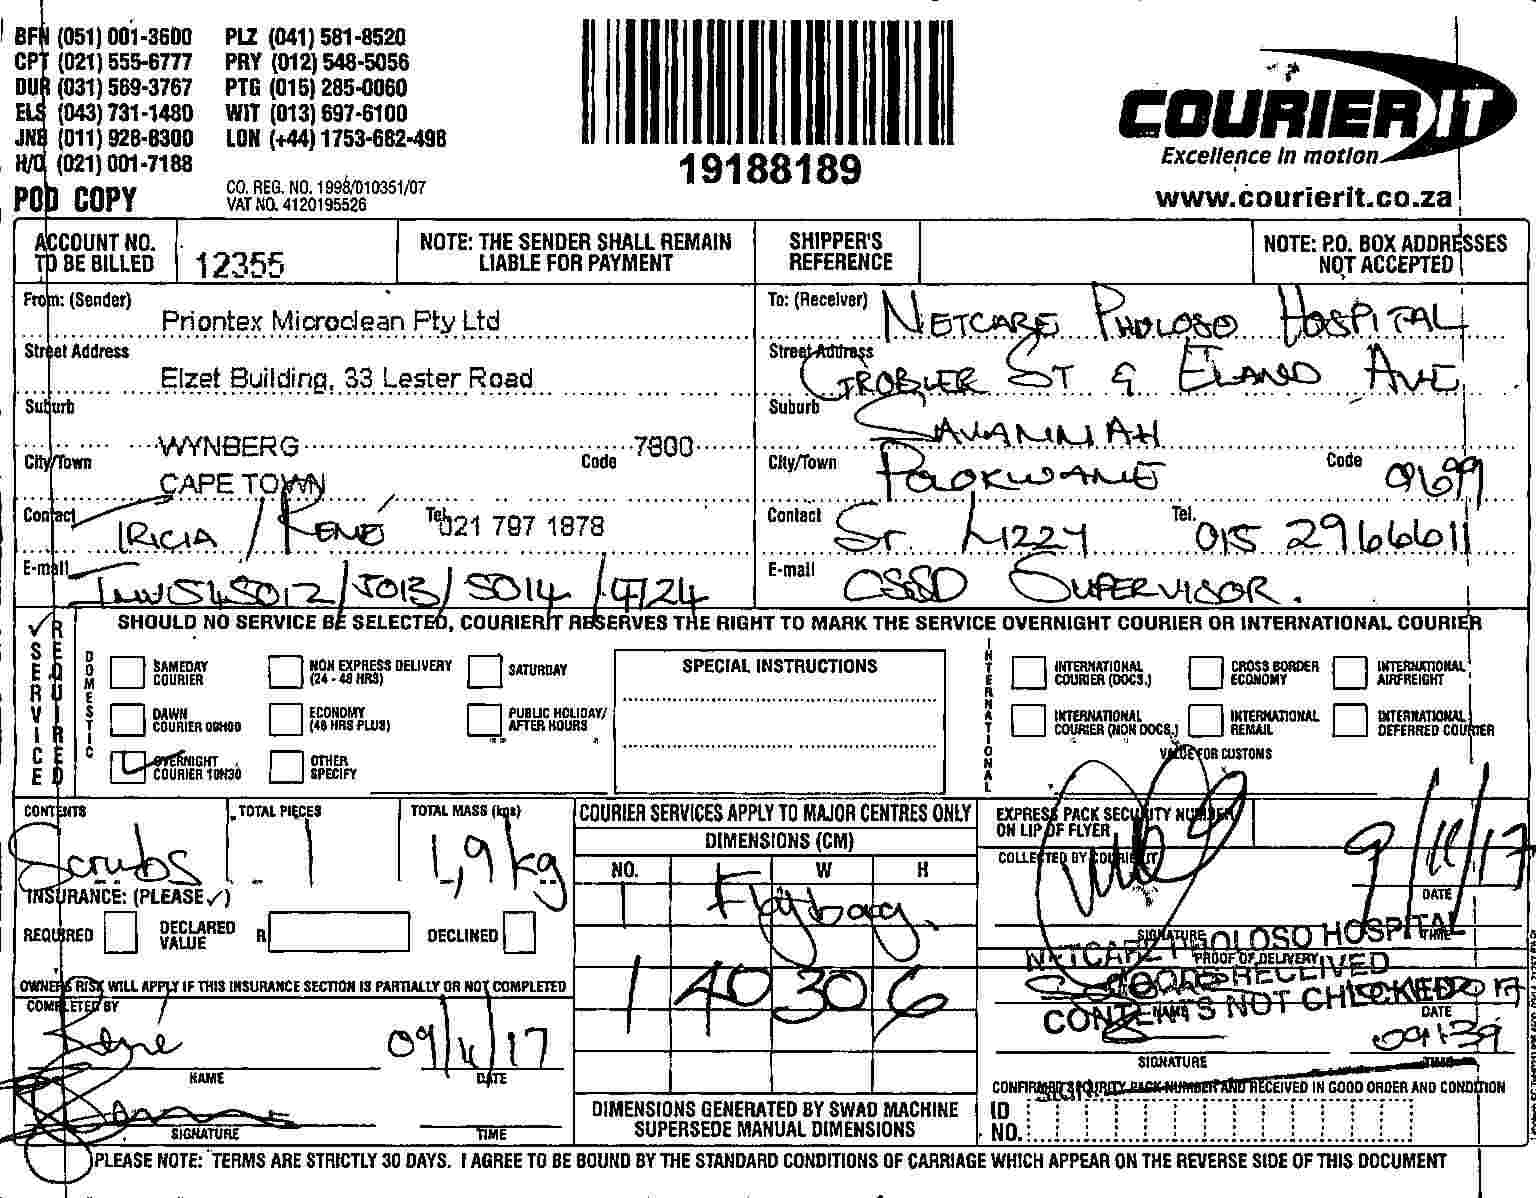 BFN (051) 001-3600 PLZ (041) 581-8520
CPT (021) 555-6777 PRY (012) 548-5056
DUR (031) 569-3767 PTG (015) 285-0060
ELS (043) 731-1480 WIT (013) 697-6100
JNB (011) 928-8300 LON (+44) 1753-682-498
H/O (021) 001-7188
POD COPY
CO. REG. NO. 1998/010351/07
VAT NO. 4120195526
19188189
COURIER IT
Excellence in motion
www.courierit.co.za
ACCOUNT NO. TO BE BILLED 12355
NOTE: THE SENDER SHALL REMAIN LIABLE FOR PAYMENT
SHIPPER'S REFERENCE
NOTE: P.O. BOX ADDRESSES NOT ACCEPTED
From: (Sender) Priontex Microclean Pty Ltd
Street Address Elzet Building, 33 Lester Road
Suburb WYNBERG
City/Town CAPE TOWN Code 7800
Contact TRICIA / RENÉ Tel. 021 797 1878
E-mail
To: (Receiver) NETCARE PHOLOSO HOSPITAL
Street Address GROBLER ST & ELAND AVE
Suburb SAVANNAH
City/Town POLOKWANE Code 0699
Contact Sr. LIZZY Tel. 015 2966611
E-mail CSSD SUPERVISOR.
SHOULD NO SERVICE BE SELECTED, COURIERIT RESERVES THE RIGHT TO MARK THE SERVICE OVERNIGHT COURIER OR INTERNATIONAL COURIER
✓ SERVICE REQUIRED
DOMESTIC
SAMEDAY COURIER
NON EXPRESS DELIVERY (24 - 48 HRS)
SATURDAY
DAWN COURIER 09H00
ECONOMY (48 HRS PLUS)
PUBLIC HOLIDAY/ AFTER HOURS
OVERNIGHT COURIER 10H30
OTHER SPECIFY
SPECIAL INSTRUCTIONS
INTERNATIONAL
INTERNATIONAL COURIER (DOCS.)
CROSS BORDER ECONOMY
INTERNATIONAL AIRFREIGHT
INTERNATIONAL COURIER (NON DOCS.)
INTERNATIONAL REMAIL
INTERNATIONAL DEFERRED COURIER
VALUE FOR CUSTOMS
CONTENTS Scrubs
TOTAL PIECES 1
TOTAL MASS (kgs) 1,9 kg
INSURANCE: (PLEASE ✓)
REQUIRED DECLARED VALUE R DECLINED
OWNERS RISK WILL APPLY IF THIS INSURANCE SECTION IS PARTIALLY OR NOT COMPLETED
COMPLETED BY
René 09/11/17
NAME DATE
SIGNATURE TIME
COURIER SERVICES APPLY TO MAJOR CENTRES ONLY
DIMENSIONS (CM)
NO. L W H
1 Flybag.
1 40 30 6
DIMENSIONS GENERATED BY SWAD MACHINE
SUPERSEDE MANUAL DIMENSIONS
EXPRESS PACK SECURITY NUMBER ON LIP OF FLYER
COLLECTED BY COURIERIT
9/11/17
DATE
SIGNATURE TIME
PROOF OF DELIVERY
NETCARE PHOLOSO HOSPITAL
GOODS RECEIVED
CONTENTS NOT CHECKED
NAME DATE
09:39
SIGNATURE TIME
CONFIRMED SECURITY PACK NUMBER AND RECEIVED IN GOOD ORDER AND CONDITION
ID NO.
PLEASE NOTE: TERMS ARE STRICTLY 30 DAYS. I AGREE TO BE BOUND BY THE STANDARD CONDITIONS OF CARRIAGE WHICH APPEAR ON THE REVERSE SIDE OF THIS DOCUMENT